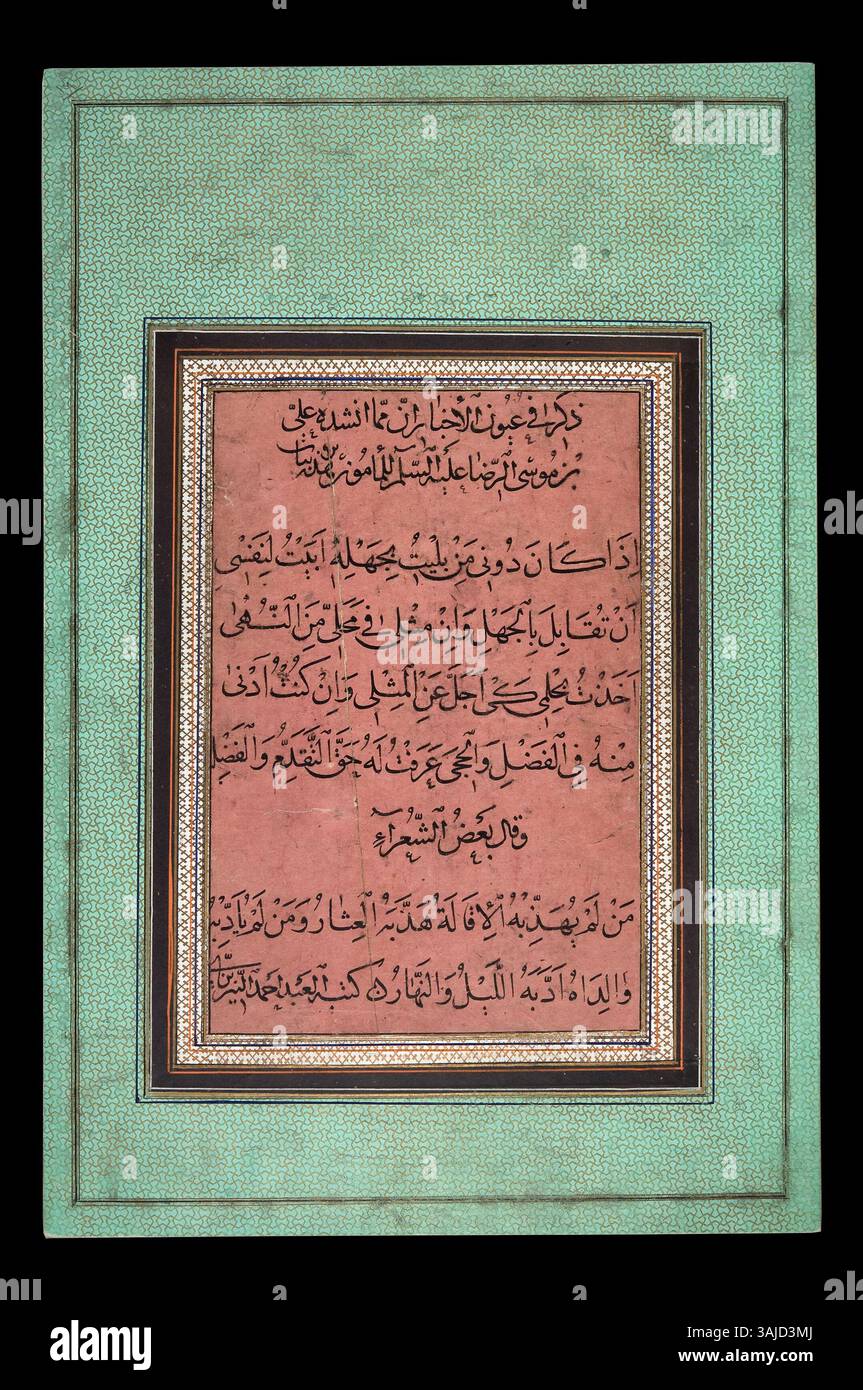 ذكر في عيون الأخبار ان مما انشده علي
بن موسى الرضا عليه السلام للمأمون
إِذَا كَانَ دُونِي مَنْ بُلِيتُ بِجَهْلِهِ اَبَيْتُ لِنَفْسِي
اَنْ تُقَابِلَ بِالْجَهْلِ وَاِنْ مِثْلِي فِي مَحَلِّي مِنَ النُّهَىٰ
اَخَذْتُ بِحِلْمِي كَيْ اَجَلَّ عَنِ الْمِثْلِ وَاِنْ كُنْتُ اَدْنَىٰ
مِنْهُ فِي الْفَضْلِ وَالْحِجَى عَرَفْتُ لَهُ حَقَّ التَّقَدُّمِ وَالْفَضْلِ
وقال بَعْضُ الشُّعَراءِ
مَنْ لَمْ يُهَذِّبْهُ الْاِقَالَةُ هَذَّبَهُ الْعِثَارُ وَمَنْ لَمْ يُأَدِّبْهُ
وَالِدَاهُ اَدَّبَهُ اللَّيْلُ وَالنَّهَارُ كتبه العبد احمد النيريزي
alamy
alamy
alamy
alamy
Image ID: 3AJD3MJ
www.alamy.com